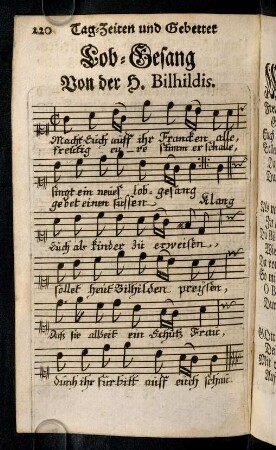 220 Tag-Zeiten und Gebetter
Lob-Gesang
Von der H. Bilhildis.
Macht Euch auff ihr Francken alle,
frewdig eu re stimm erschalle,
singt ein neues lob-gesang
gebet einen süssen Klang
Euch als kinder zu erweisen,
sollet heut Bilhilden preisen,
Daß sie alzeit ein Schutz Frau,
durch ihr fürbitt auff euch schau.